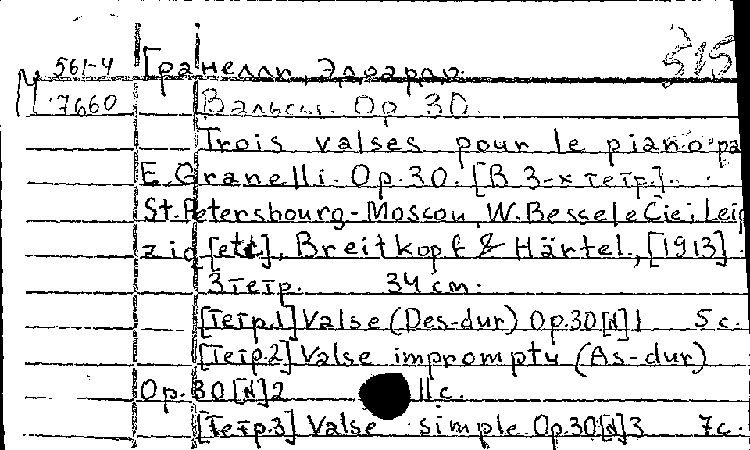 561-4 Гранелли, Эдоардо. 515
М.7660 Вальсы. Op. 30.
Trois valses pour le piano pa
E. Granelli. Op. 30. [В 3-х тетр.].
St. Petersbourg-Moscou, W. Bessel e Cie; Leip
zig [etc], Breitkopf & Härtel, [1913]
3 тетр. 34 cm.
[Тетр.1] Valse (Des-dur) Op.30[N]1 5 c.
[Тетр.2] Valse impromptu (As-dur)
Op. 30[N]2 11c.
[Тетр.3] Valse simple Op.30[N]3 7c.